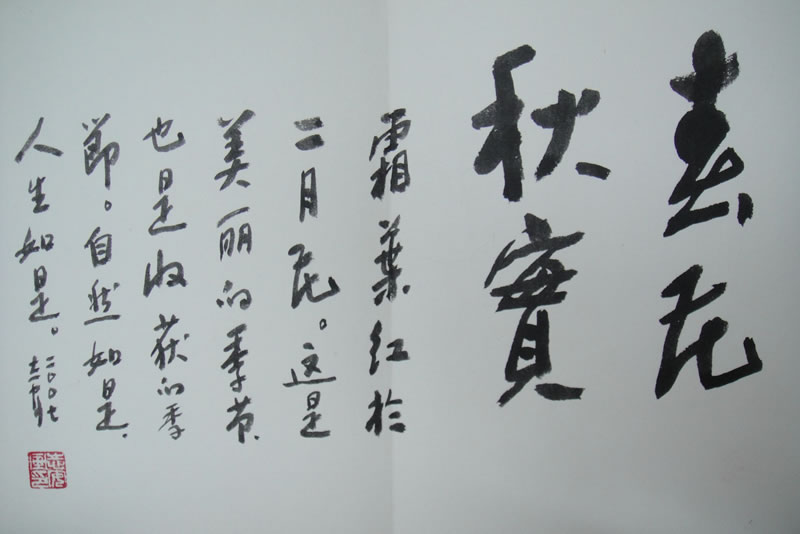 春花
秋實
霜葉红於
二月花。这是
美丽的季节、
也是收获的季
節。自然如是、
人生如是。
二〇〇七